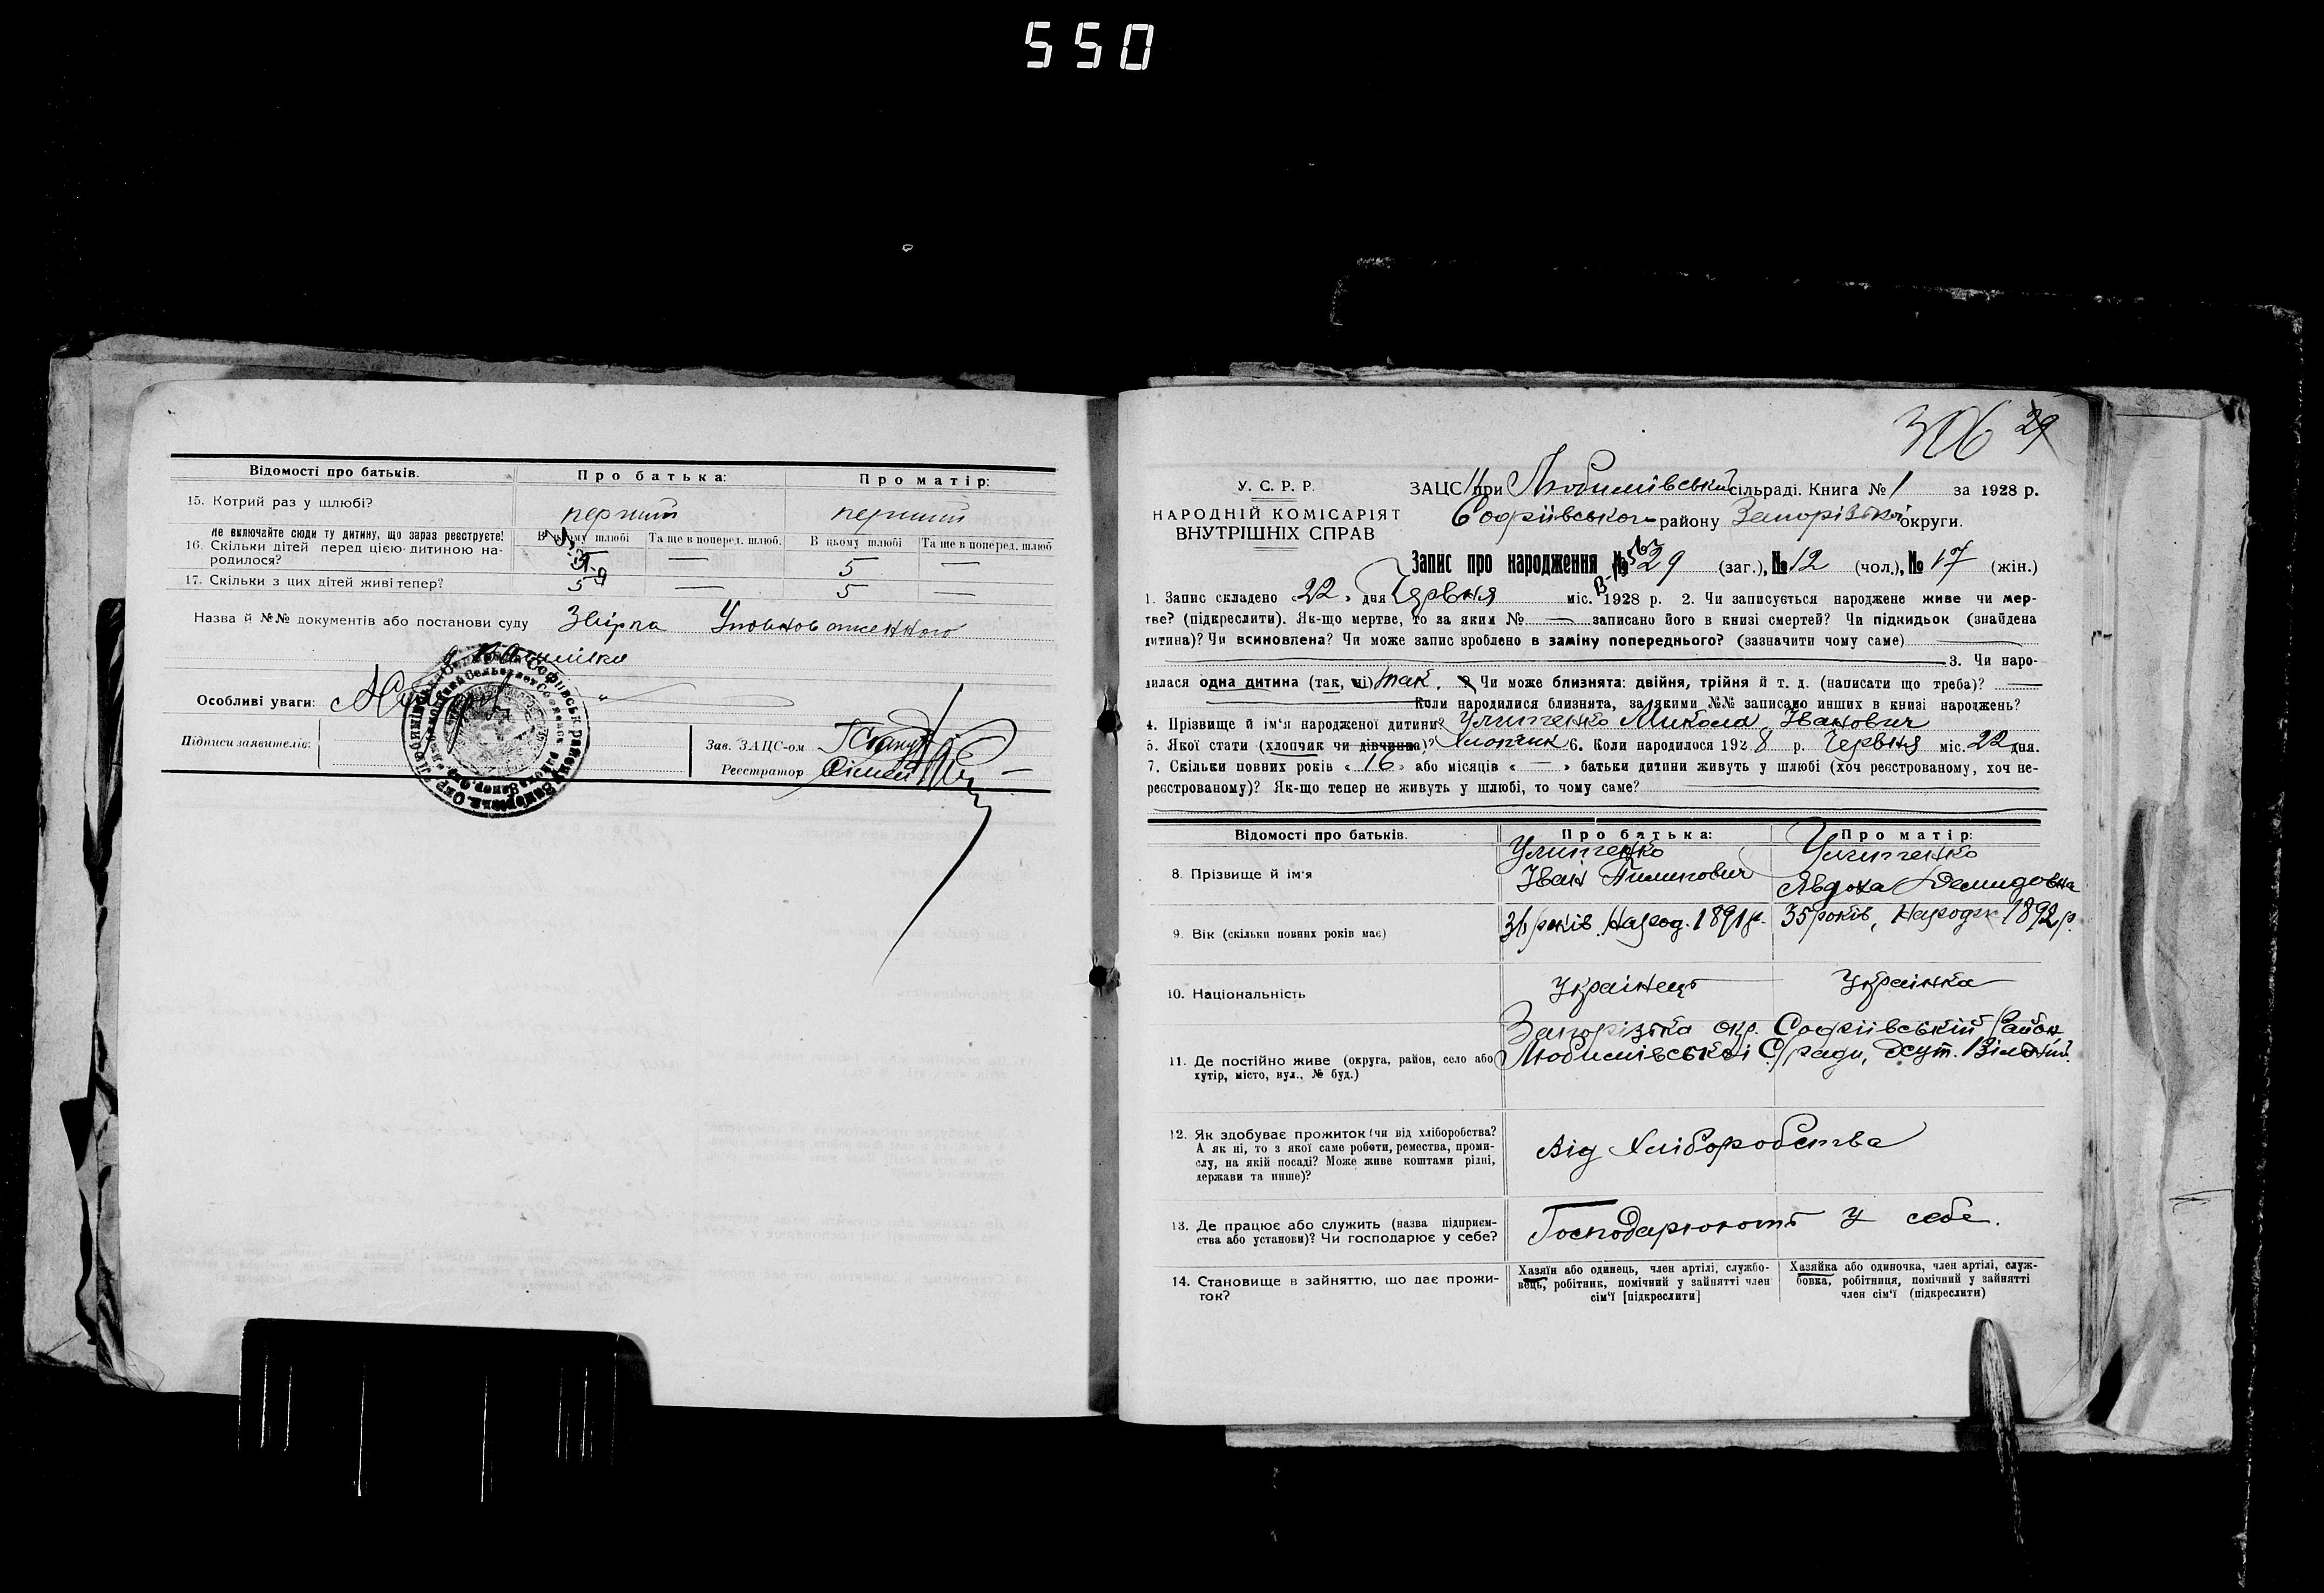 550
Відомості про батьків. Про батька: Про матір:
15. Котрий раз у шлюбі? перший перший
не включайте сюди ту дитину, що зараз реєструєте!
16. Скільки дітей перед цією дитиною на-
родилося?
В цьому шлюбі Та ще в поперед. шлюб. В цьому шлюбі Та ще в поперед. шлюб
5 — 5 —
17. Скільки з цих дітей живі тепер? 5 — 5 —
Назва й №№ документів або постанови суду
Особливі уваги:
Підписи заявителів:
Зав. ЗАЦС-ом
Реєстратор
306 29
У. С. Р. Р.
НАРОДНІЙ КОМІСАРІЯТ
ВНУТРІШНІХ СПРАВ
ЗАЦС при Любимівській сільраді. Книга № 1 за 1928 р.
Софіївського району Запорізької округи.
Запис про народження № 29 (заг.), № 12 (чол.), № 17 (жін.)
1. Запис складено „22„ дня Червня міс. 1928 р. 2. Чи записується народжене живе чи мер-
тве? (підкреслити). Як-що мертве, то за яким № — записано його в книзі смертей? Чи підкидьок (знайдена
дитина)? Чи всиновлена? Чи може запис зроблено в заміну попереднього? (зазначити чому саме)
3. Чи наро-
дилася одна дитина (так, ні) так. Чи може близнята: двійня, трійня й т. д. (написати що треба)? —
Коли народилися близнята, за якими №№ записано инших в книзі народжень?
4. Прізвище й ім'я народженої дитини? Микола Іванович
5. Якої статі (хлопчик чи дівчинка)? Хлопчик 6. Коли народилося 1928 р. Червня міс. 22 дня.
7. Скільки повних років «16» або місяців «—» батьки дитини живуть у шлюбі (хоч реєстрованому, хоч не-
реєстрованому)? Як-що тепер не живуть у шлюбі, то чому саме?
Відомості про батьків. Про батька: Про матір:
8. Прізвище й ім'я
Іван Пилипович Явдоха Демидовна
9. Вік (скільки повних років має) 36 років. Народ. 1891 р. 35 років, Народж. 1892 р.
10. Національність Українець Українка
Запорізька окр. Софіївський Район
11. Де постійно живе (округа, район, село або Любимівської С/ради, хут. Вільний.
хутір, місто, вул., № буд.)
12. Як здобуває прожиток (чи від хліборобства?
А як ні, то з якої саме роботи, ремества, проми-
слу, на якій посаді? Може живе коштами рідні,
держави та инше)?
від Хліборобства
13. Де працює або служить (назва підприєм-
ства або установи)? Чи господарює у себе?
Господарюють у себе.
14. Становище в зайняттю, що дає прожи-
ток?
Хазяїн або одинець, член артілі, службо-
вець, робітник, помічний у зайнятті член
сім'ї [підкреслити]
Хазяйка або одиночка, член артілі, служ-
бовка, робітниця, помічний у зайнятті
член сім'ї (підкреслити)